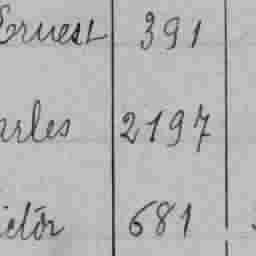 Ernest 391
arles 2197
ictor 681